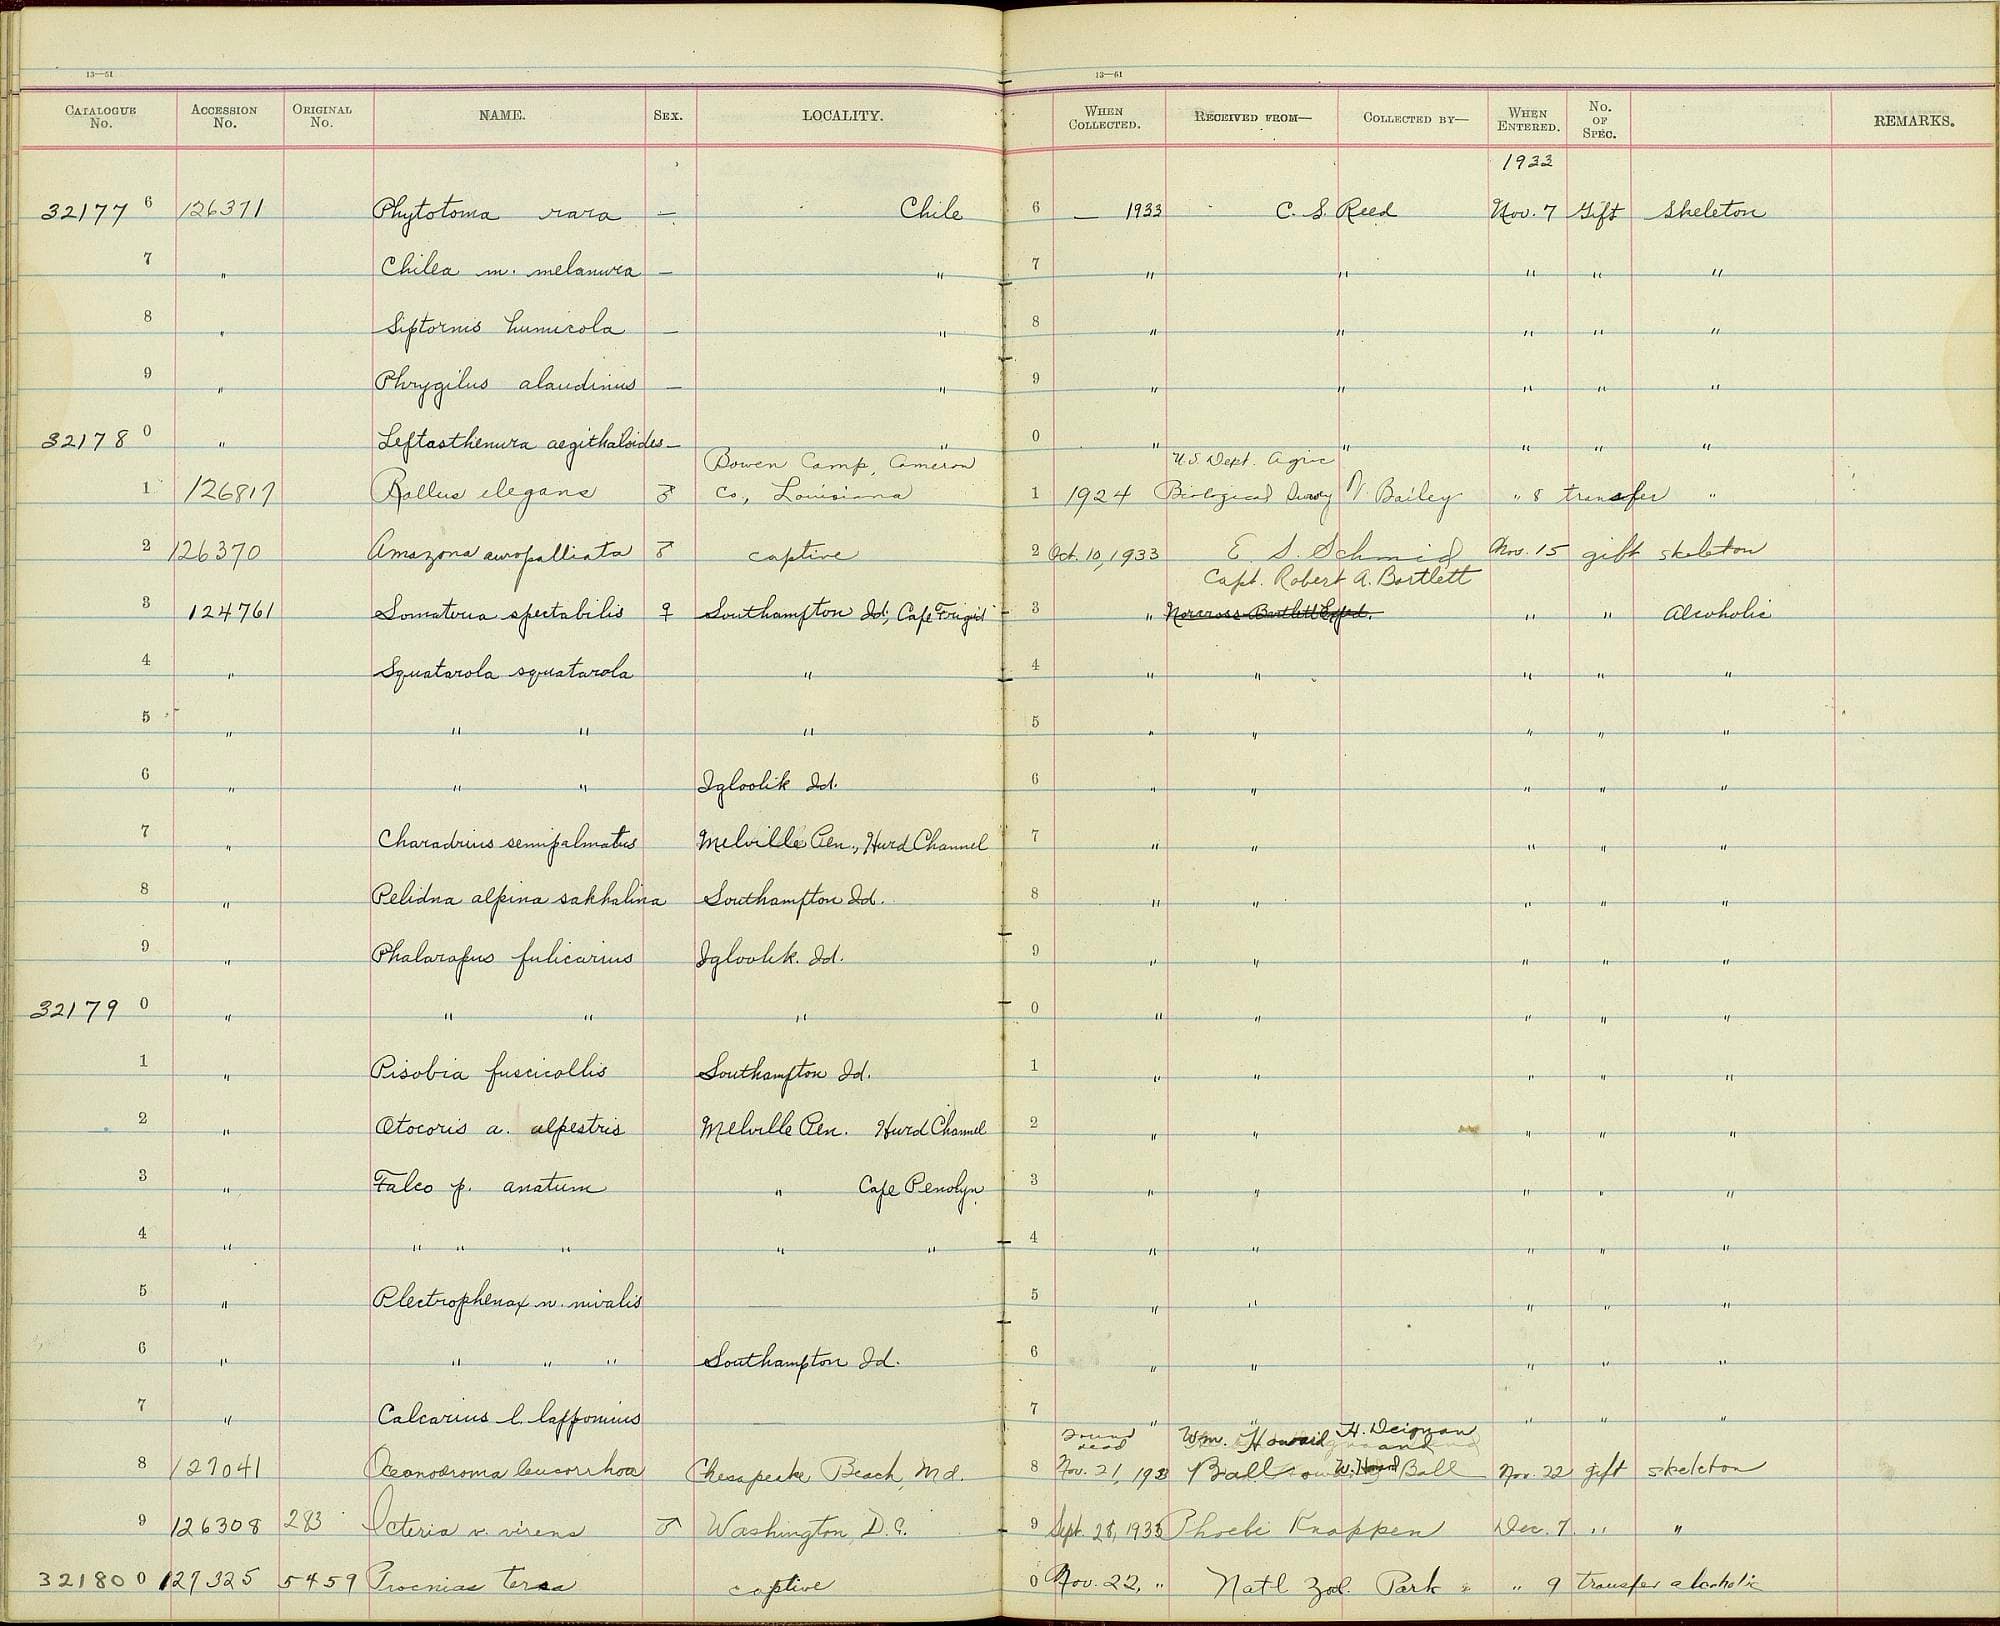 13—51 13—51
CATALOGUE No. ACCESSION No. ORIGINAL No. NAME. SEX. LOCALITY. WHEN COLLECTED. RECEIVED FROM— COLLECTED BY— WHEN ENTERED. No. OF SPEC. REMARKS.
1933
32177 6 126371 Phytotoma rara — Chile 6 — 1933 C. S. Reed Nov. 7 Gift Skeleton
7 " Chilea m. melanura — " 7 " " " " "
8 " Siptornis humicola — " 8 " " " " "
9 " Phrygilus alaudinus — " 9 " " " " "
32178 0 " Leptasthenura aegithaloides — " 0 " " " " "
Bowen Camp, Cameron U.S. Dept. Agric
1 126817 Rallus elegans ♂ Co., Louisiana 1 1924 Biological Survey V Bailey " 8 transfer "
2 126370 Amazona auropalliata ♂ captive 2 Oct. 10, 1933 E. S. Schmid Nov. 15 gift skeleton
Capt. Robert A. Bartlett
3 124761 Somateria spectabilis ♀ Southampton Id., Cape Frigid 3 " Norcross-Bartlett Exped. " " Alcoholic
4 " Squatarola squatarola " 4 " " " " "
5 " " " " 5 " " " " "
6 " " " Igloolik Id. 6 " " " " "
7 " Charadrius semipalmatus Melville Pen., Hurd Channel 7 " " " " "
8 " Pelidna alpina sakhalina Southampton Id. 8 " " " " "
9 " Phalaropus fulicarius Igloolik. Id. 9 " " " " "
32179 0 " " " " 0 " " " " "
1 " Pisobia fuscicollis Southampton Id. 1 " " " " "
2 " Otocoris a. alpestris Melville Pen. Hurd Channel 2 " " " " "
3 " Falco p. anatum " Cape Penolyn 3 " " " " "
4 " " " " " " 4 " " " " "
5 " Plectrophenax n. nivalis — 5 " " " " "
6 " " " " Southampton Id. 6 " " " " "
7 " Calcarius l. lapponicus — 7 " " " " "
found dead Wm. Howard H. Deignan and
8 127041 Oceanodroma leucorrhoa Chesapeake Beach, Md. 8 Nov. 21, 1933 Ball W. Howard Ball Nov. 22 gift skeleton
9 126308 283 Icteria v. virens ♂ Washington, D.C. 9 Sept. 28, 1933 Phoebe Knappen Dec. 7 " "
32180 0 127325 5459 Procnias tersa captive 0 Nov. 22, " Nat'l Zool. Park " " 9 transfer alcoholic